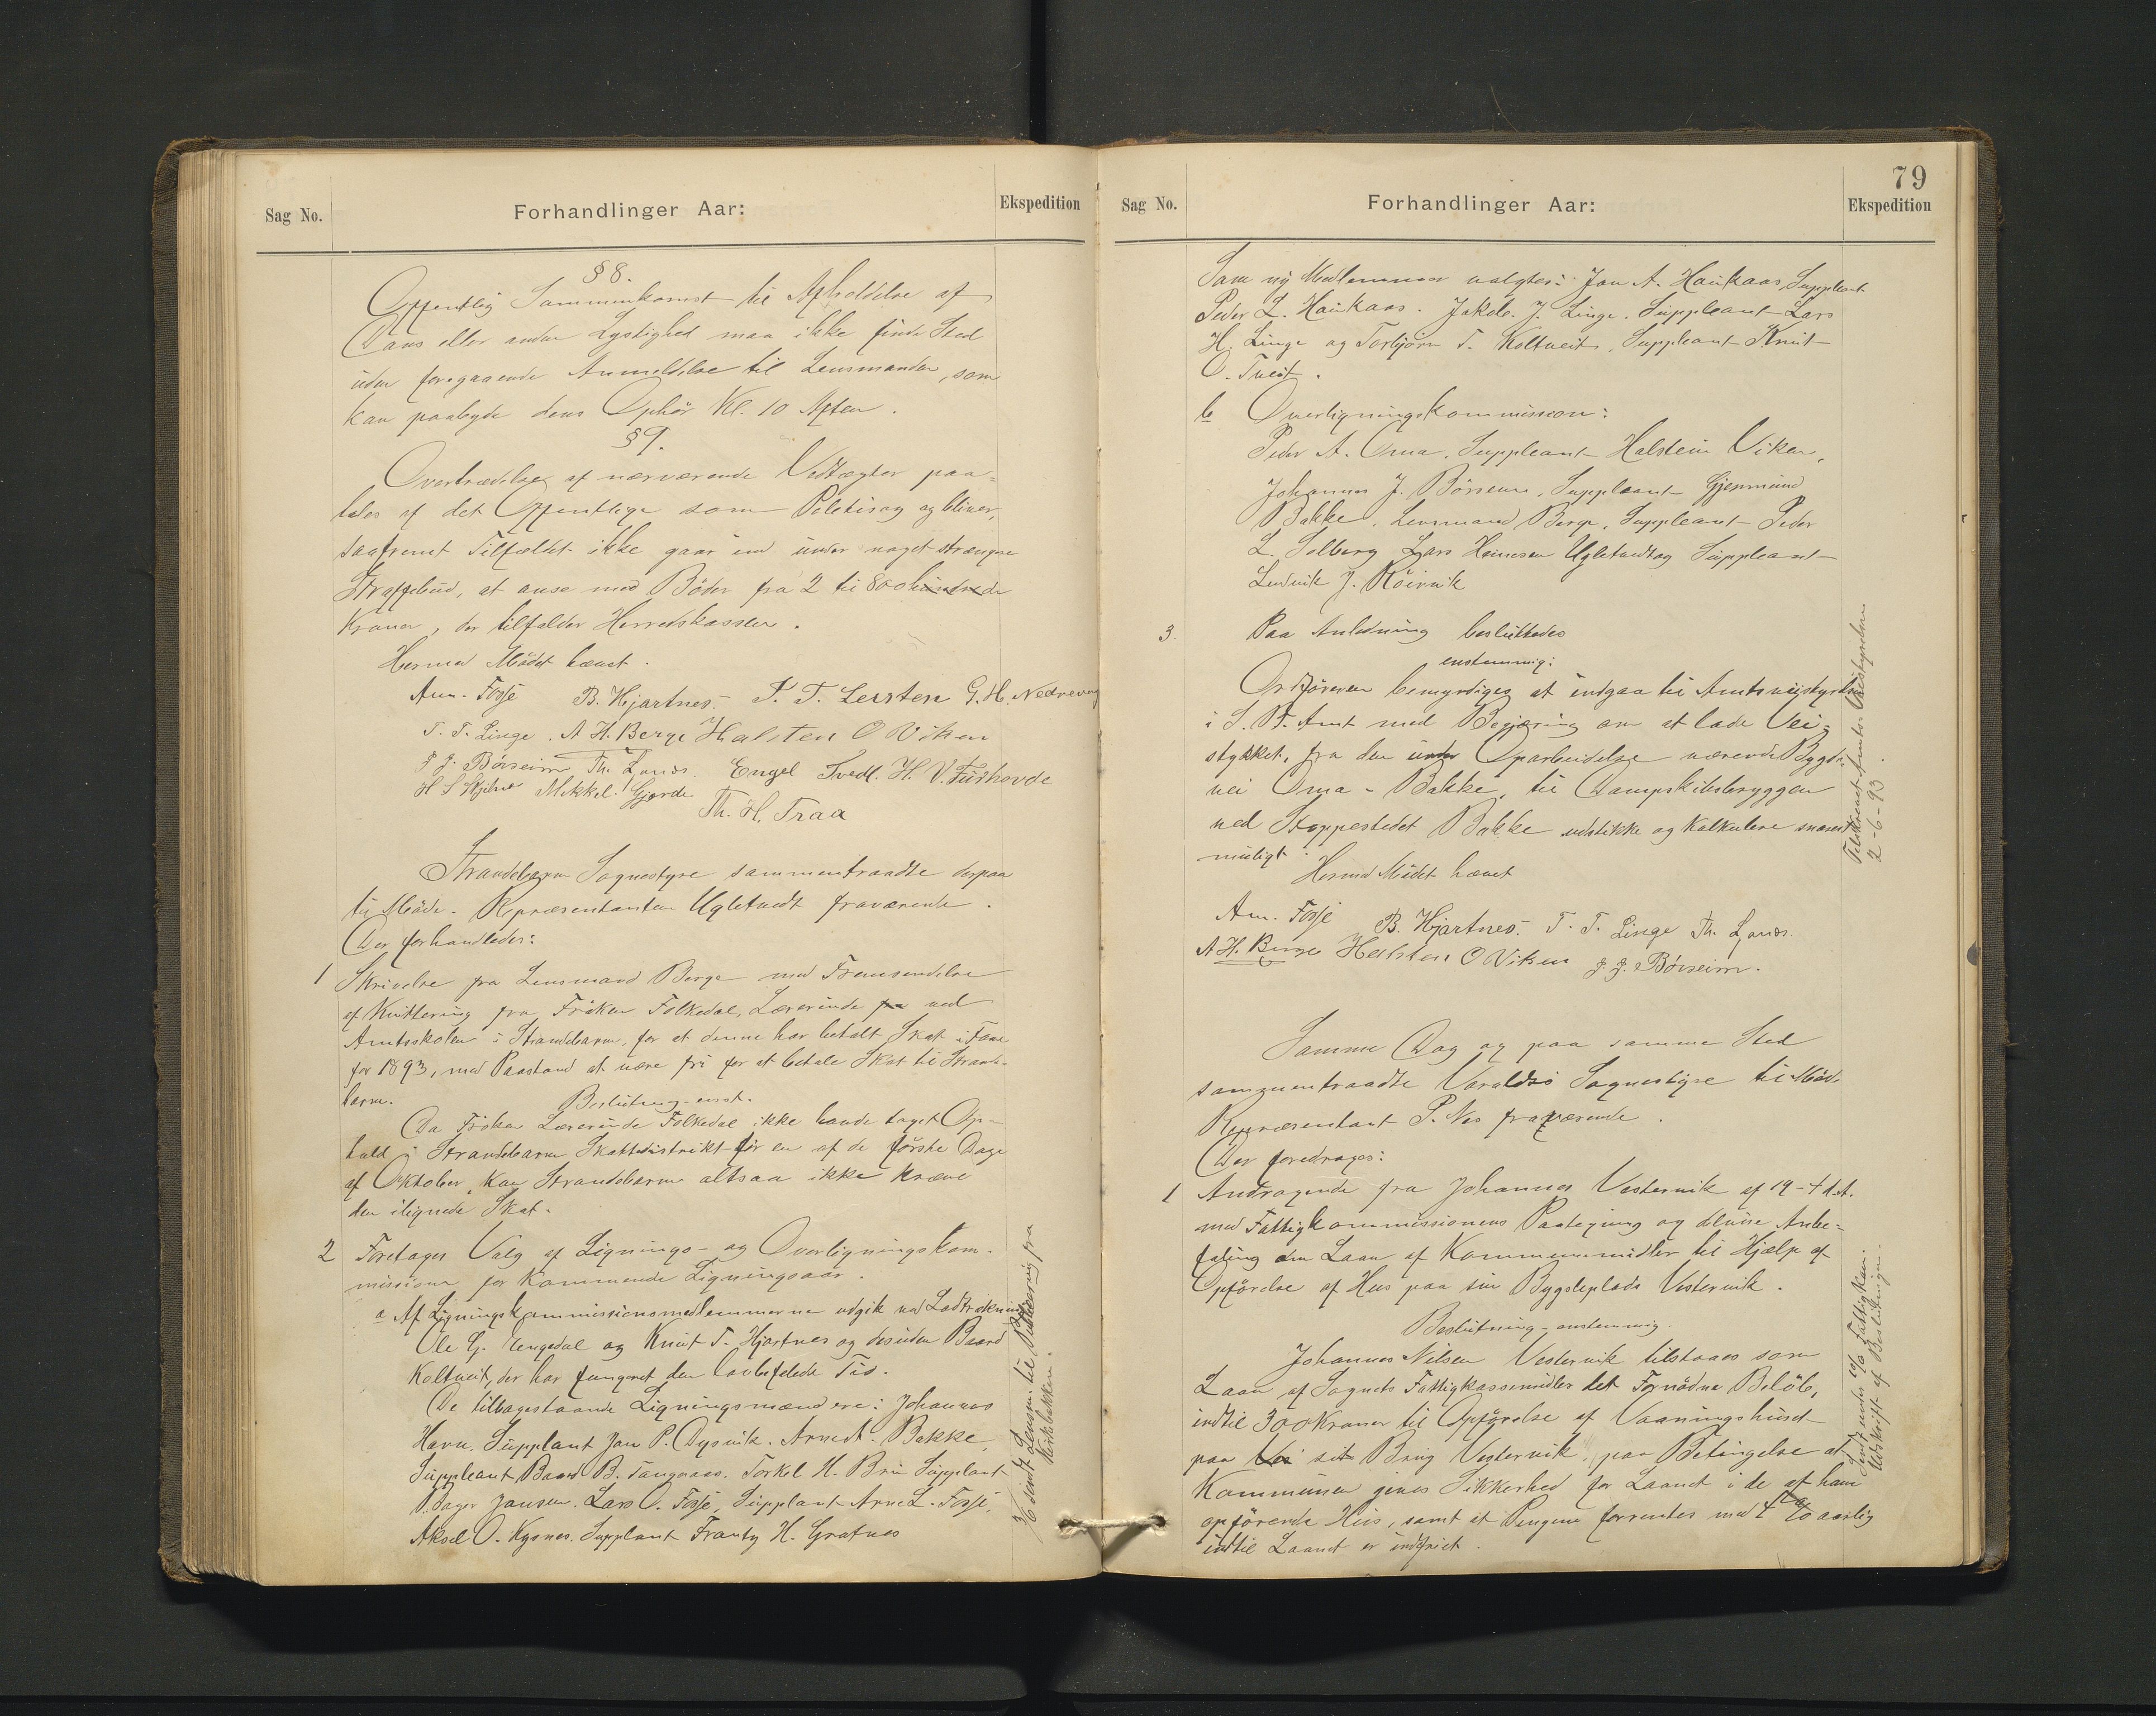 Sag No.
Forhandlinger Aar:
Ekspedition
§ 8.
Offentlig Sammenkomst til Afholdelse af
Dans eller anden Lystighed maa ikke finde Sted
uden foregaaende Anmeldelse til Lensmanden, som
kan paabyde dens Ophör Kl. 10 Aften.
§ 9.
Overtrædelse af nærværende Vedtægter paa-
tales af det Offentlige som Politisag og bliver,
saafremt Tilfældet ikke gaar ind under noget strængere
Straffebud, at anse med Böder fra 2 til 800 hundrede
Kroner, der tilfalder Herredskassen.
Hermed Mödet hævet.
Am. Fosse B. Hjartnes. T. T. Leirsten G. H. Nedrevaag
T. T. Linge. A H. Berge Halsten O Viken
J. J. Börseim Th. Lönes. Engel Tvedt. H. V. Fusshovde
H S Skjelnæs Mikkel Gjerde
Th. H. Traa
Strandebarm Sognestyre sammentraadte derpaa
til Möde. Repræsentanten Ugletvedt fraværende.
Der forhandledes:
1 Skrivelse fra Lensmand Berge med Fremsendelse
af Kvittering fra Fröken Folkedal, Lærerinde fra ved
Amtsskolen i Strandebarm, for at denne har betalt Skat i Fane
for 1893, med Paastand at være fri for at betale Skat til Strande-
barm.
Beslutning - enst.
Da Fröken Lærerinde Folkedal ikke havde taget Op-
hold i Strandebarm Skattedistrikt för en af de förste Dage
af Oktober, kan Strandebarm altsaa ikke kræve
den ilignede Skat.
2 Foretages Valg af Lignings- og Overligningskom-
missioner for kommende Ligningsaar.
a Af Ligningskommissionsmedlemmerne udgik ved Lodtrækning
Ole G. Tengedal og Knut T. Hjartnes og desuden Baard
Koltveit, der har fungeret den lovbefalede Tid.
De tilbagestaaende Ligningsmænd ere: Johannes
Havn. Supplant Jan P. Dysvik. Arne A. Bakke,
Suppleant Baard B. Tangeraas. Torkel H. Bru Supplant
P. Dager Jansen. Lars O. Fosse, Supplant Arne L. Fosse,
Aksel O. Kysnes. Supplant Frantz H. Grafnes
3/6 sendt Lensm. til Publicering fra
Kirkebakken.
79
Sag No.
Forhandlinger Aar:
Ekspedition
Som ny Medlemmer valgtes: Jon A. Haukaas, Suppleant
Peder L. Haukaas. Jakob J. Linge. Suppleant Lars
H. Linge og Torbjörn T. Koltveit, Suppleant Knut
O. Tveit.
b Overligningskommission:
Peder A. Oma. Suppleant Halstein Viken,
Johannes J. Börseim, Suppleant Gjermund
Bakke, Lensmand Berge, Suppleant Peder
L. Solberg Lars Heinesen Ugletvedt og Suppleant
Ludvik J. Röirvik
3. Paa Anledning besluttedes
enstemmig:
Ordföreren bemyndiges at indgaa til Amtsveistyrelsen
i S. B. Amt med Begjæring om at lade Vei-
stykket, fra den under Oparbeidelse værende Bygde-
vei Oma - Bakke, til Dampskibsbryggen
ved Stoppestedet Bakke udstikke og kalkulere snarest
muligt.
Hermed Mödet hævet
Am. Fosse B. Hjartnes. T. T. Linge Th. Lönes.
A H. Berge Halsten O Viken J. J. Börseim.
Tilskrevet Amts Veistyrelsen
2-6-93
Samme Dag og paa samme Sted
sammentraadte Varaldsö Sognestyre til Möde
Repræsentant P. Nes fraværende.
Der foredrages:
1 Andragende fra Johannes Vestervik af 19-4 d.A.
med Fattigkommissionens Paategning og delvise Anbe-
faling om Laan af Kommunemidler til Hjælp af
Opförelse af Hus paa sin Bygsleplads Vestervik.
Beslutning - enstemmig.
Johannes Nilsen Vestervik tilstaaes som
Laan af Sognets Fattigkassemidler det Fornödne Belöb,
indtil 300 Kroner til Opförelse af Vaaningshuset
paa Ves sit Brug Vestervik, paa Betingelse at
Kommunen gives Sikkerhed for Laanet i de af ham
opförende Hus, samt at Pengene forrentes med 4 % aarlig
indtil Laanet er indfriet.
Udskrift af Beslutningen.